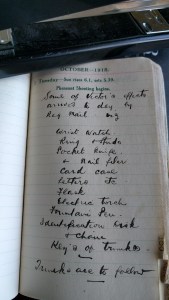 OCTOBER—1918.
Tuesday—Sun rises 6.1, sets 5.39.
Pheasant Shooting begins.
Some of Victor's effects
arrived to day by
Reg Mail
Wrist Watch
Ring & Studs
Pocket Knife
& Nail files
Card case
Letters etc
Flask
Electric Torch
Fountain Pen.
Identification Disk
& chain
Key's of trunks.
Trunks are to follow